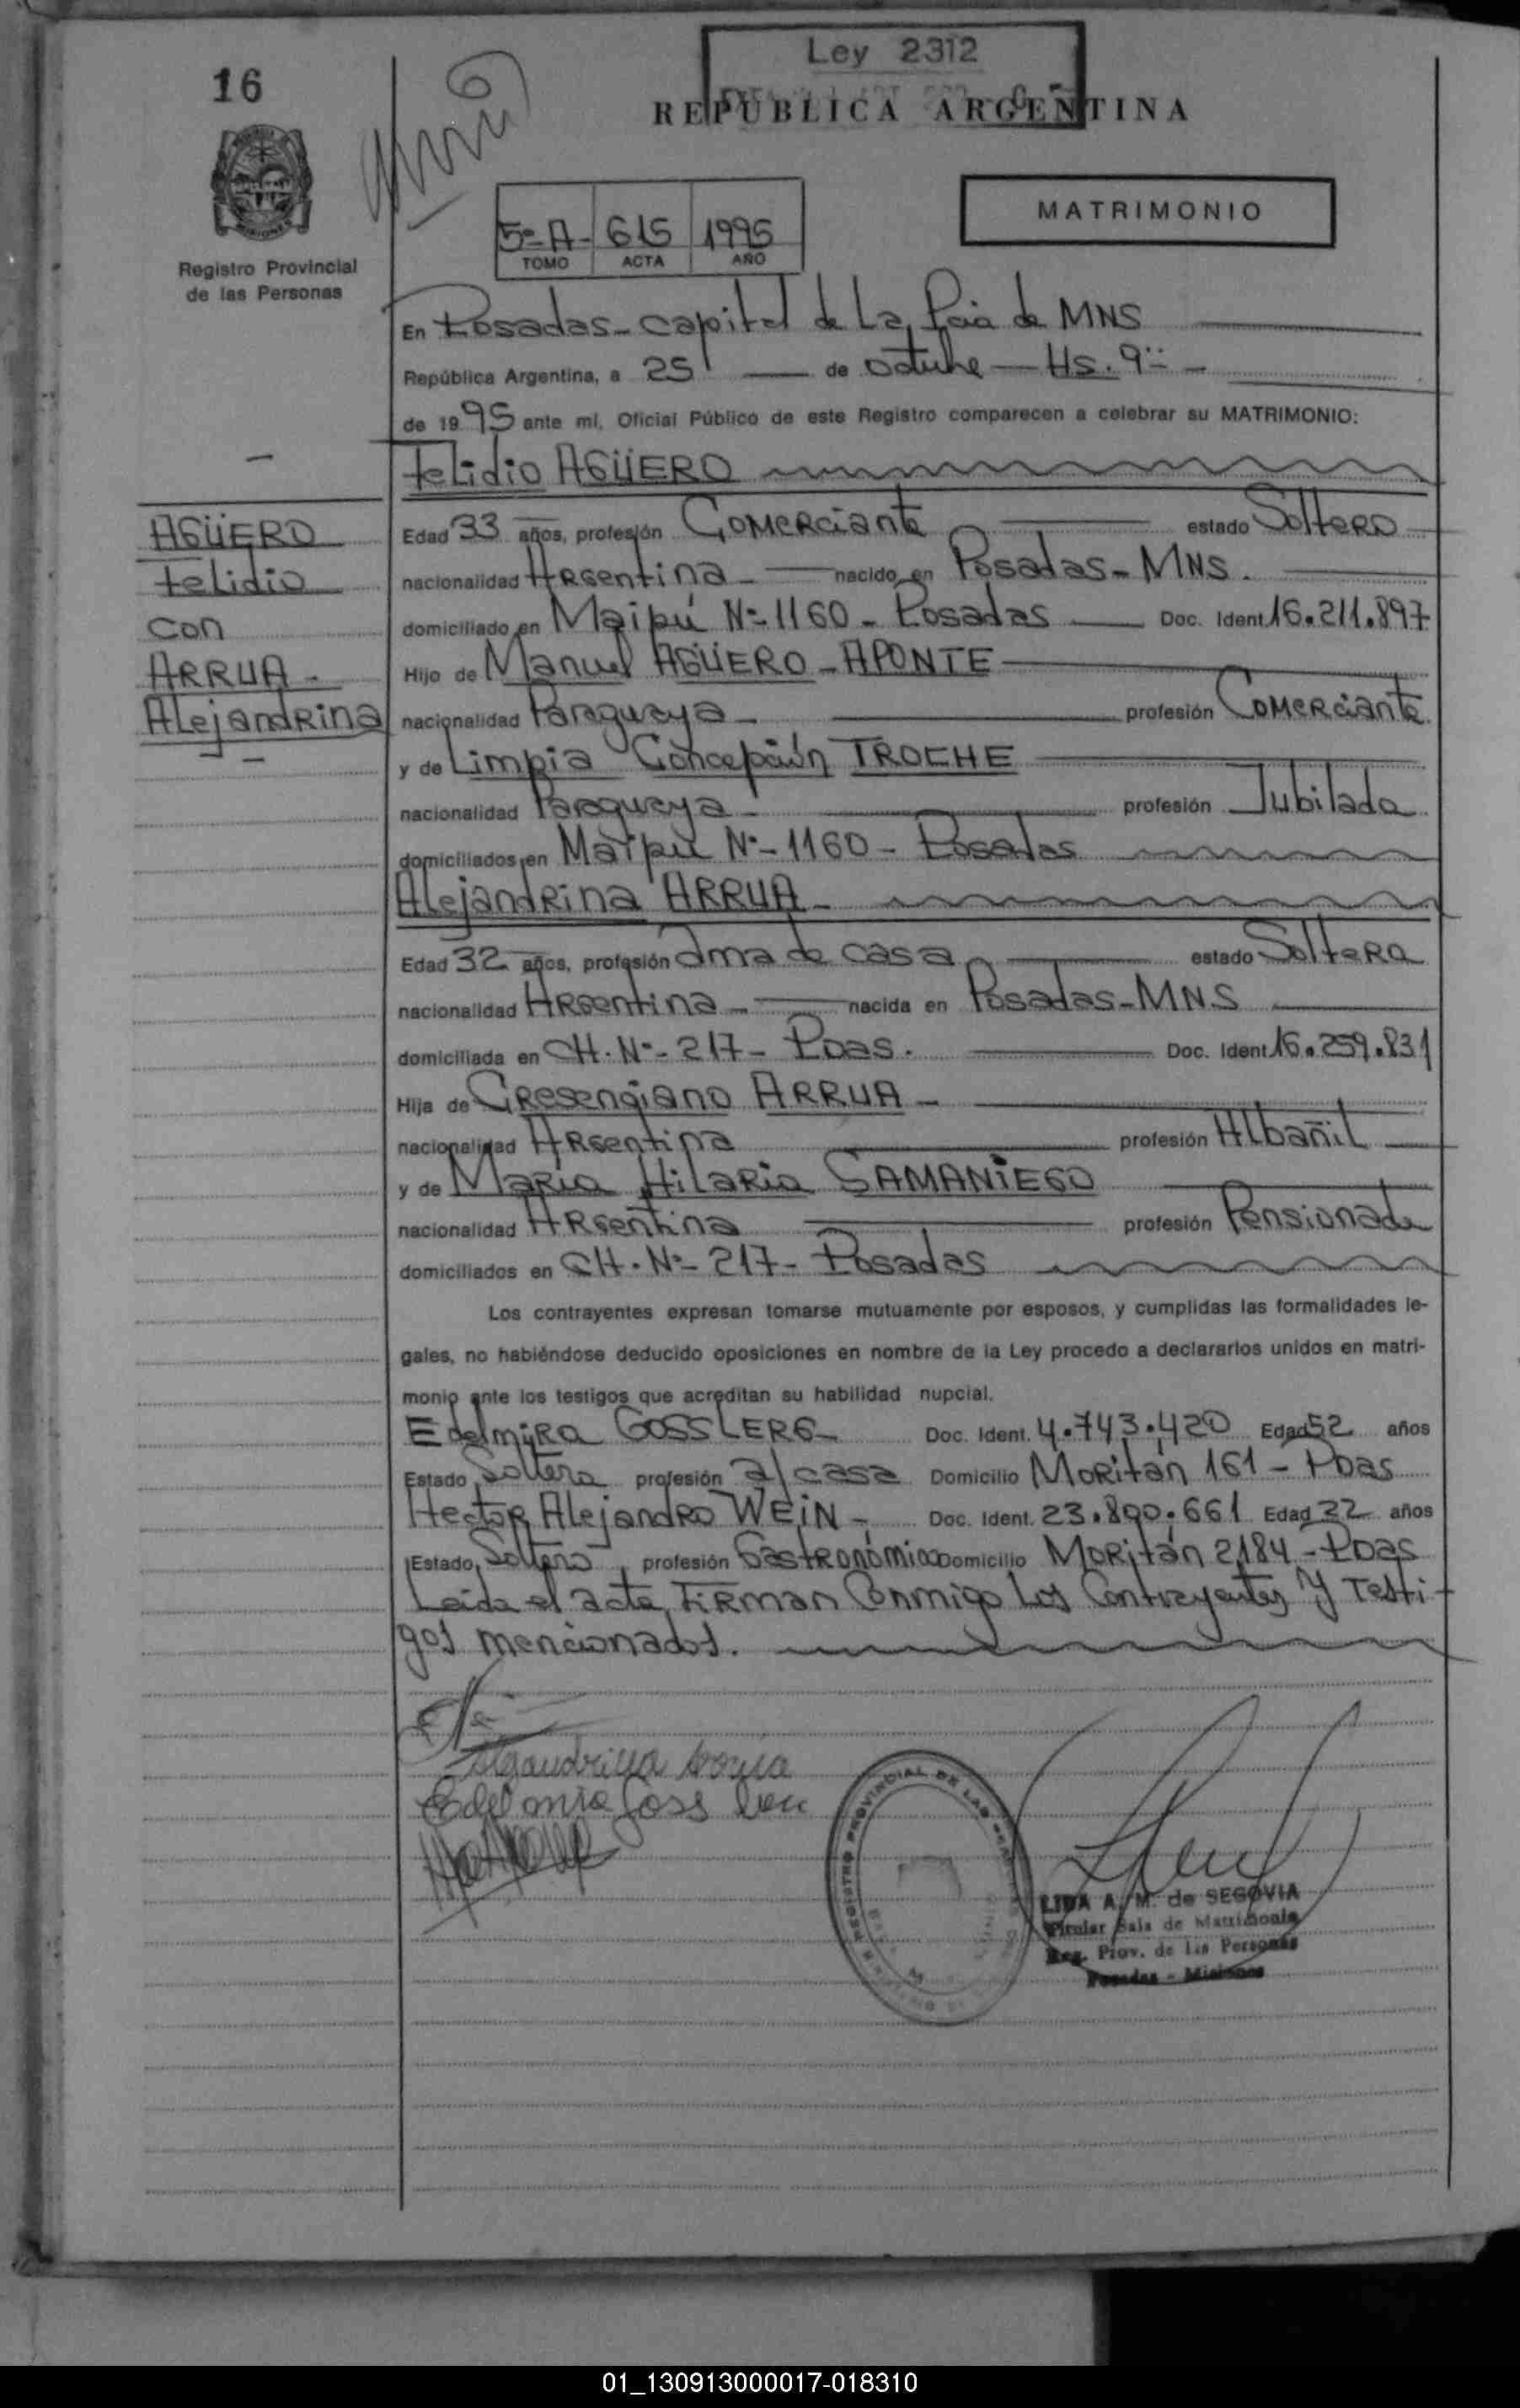 Ley 2312
16
REPUBLICA ARGENTINA
MATRIMONIO
5º-A- 615 1995
TOMO ACTA AÑO
Registro Provincial
de las Personas
En Posadas-capital de La Pcia de MNS
República Argentina, a 25 de octubre Hs. 9
de 1995 ante mi, Oficial Público de este Registro comparecen a celebrar su MATRIMONIO:
Felidio AGÜERO
AGÜERO
Felidio
con
ARRUA-
Alejandrina
Edad 33 años, profesión Comerciante estado Soltero
nacionalidad Argentina- nacido en Posadas-MNS.
domiciliado en Maipú Nº-1160-Posadas Doc. Ident. 16.211.897
Hijo de Manuel AGÜERO-APONTE
nacionalidad Paraguaya- profesión Comerciante
y de Limpia Concepción TROCHE
nacionalidad Paraguaya- profesión Jubilada
domiciliados en Maipú Nº-1160-Posadas
Alejandrina ARRUA-
Edad 32 años, profesión ama de casa estado Soltera
nacionalidad Argentina- nacida en Posadas-MNS
domiciliada en CH.Nº-217-Pdas. Doc. Ident. 16.259.831
Hija de Cresenciano ARRUA-
nacionalidad Argentina profesión Albañil
y de Maria Hilaria SAMANIEGO
nacionalidad Argentina profesión Pensionada
domiciliados en CH.Nº-217-Posadas
Los contrayentes expresan tomarse mutuamente por esposos, y cumplidas las formalidades le-
gales, no habiéndose deducido oposiciones en nombre de la Ley procedo a declararlos unidos en matri-
monio ante los testigos que acreditan su habilidad nupcial.
Edelmira GOSSLERG- Doc. Ident. 4.743.420 Edad 52 años
Estado Soltera profesión a/casa Domicilio Moritán 161-Pdas
Hector Alejandro WEIN- Doc. Ident. 23.890.661 Edad 22 años
Estado Soltero profesión Gastronómico Domicilio Moritán 2184-Pdas
Leida el acta, Firman Conmigo Los Contrayentes Y Testi-
gos mencionados.
Alejandrina Arrua
REGISTRO PROVINCIAL DE LAS
LIDA A. M. de SEGOVIA
Titular Sala de Matrimonio
Reg. Prov. de las Personas
Posadas - Misiones
01_130913000017-018310